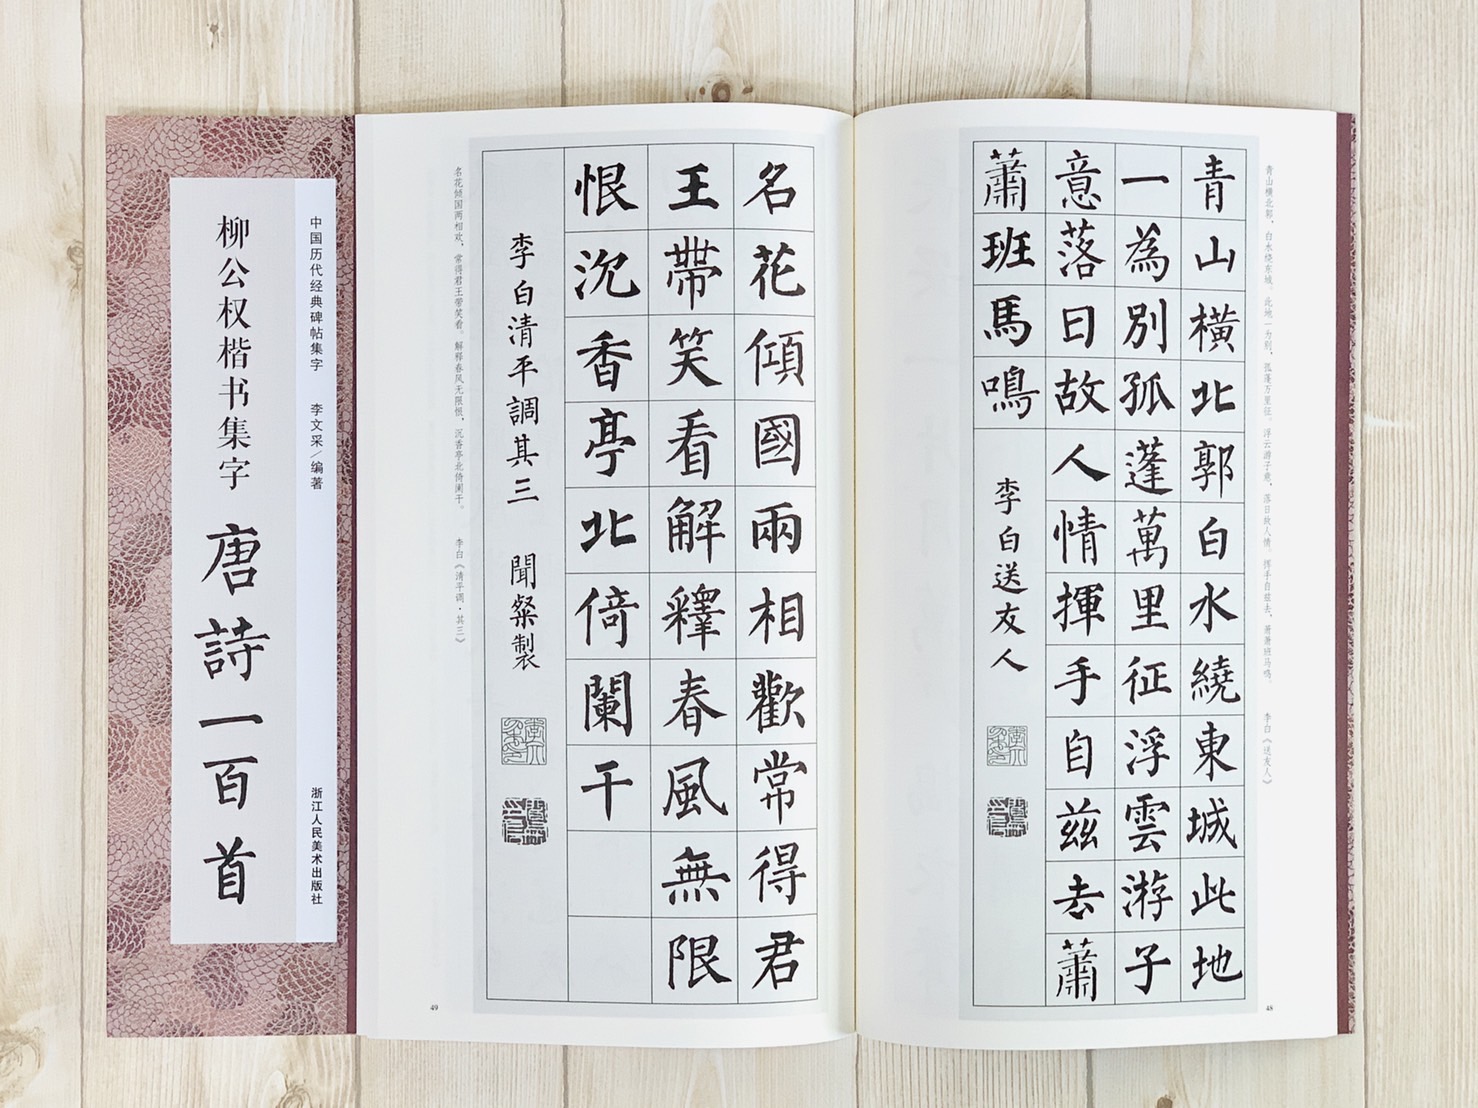 青山横北郭，白水绕东城。此地一为别，孤蓬万里征。浮云游子意，落日故人情。挥手自兹去，萧萧班马鸣。 李白《送友人》
青山橫北郭白水繞東城此地
一為別孤蓬萬里征浮雲游子
意落日故人情揮手自茲去蕭
蕭班馬鳴
李白送友人
48
名花傾國兩相歡常得君
王帶笑看解釋春風無限
恨沉香亭北倚闌干
李白清平調其三 聞粲製
名花倾国两相欢，常得君王带笑看。解释春风无限恨，沉香亭北倚阑干。 李白《清平调·其三》
49
中国历代经典碑帖集字 李文采/编著
浙江人民美术出版社
柳公权楷书集字 唐詩一百首